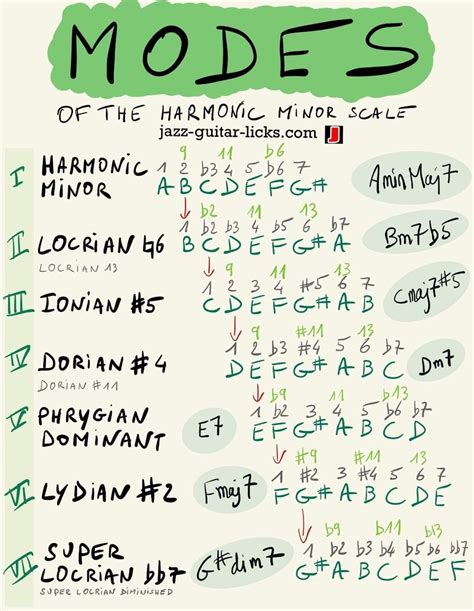 MODES
OF THE HARMONIC MINOR SCALE
jazz-guitar-licks.com J
9 11 b6
I HARMONIC MINOR 1 2 b3 4 5 b6 7
A B C D E F G# AminMaj7
b2 11 13
II LOCRIAN ♮6 1 b2 b3 4 b5 6 b7
LOCRIAN 13 B C D E F G# A Bm7b5
9 11 13
III IONIAN #5 1 2 3 4 #5 6 7
C D E F G# A B Cmaj7#5
9 #11 13
IV DORIAN #4 1 2 b3 #4 5 6 b7
DORIAN #11 D E F G# A B C Dm7
b9 11 b13
V PHRYGIAN DOMINANT E7 1 b2 3 4 5 b6 b7
E F G# A B C D
#9 #11 13
VI LYDIAN #2 Fmaj7 1 #2 3 #4 5 6 7
F G# A B C D E
b9 b11 b13
VII SUPER LOCRIAN bb7 G#dim7 1 b2 b3 b4 b5 b6 bb7
SUPER LOCRIAN DIMINISHED G# A B C D E F